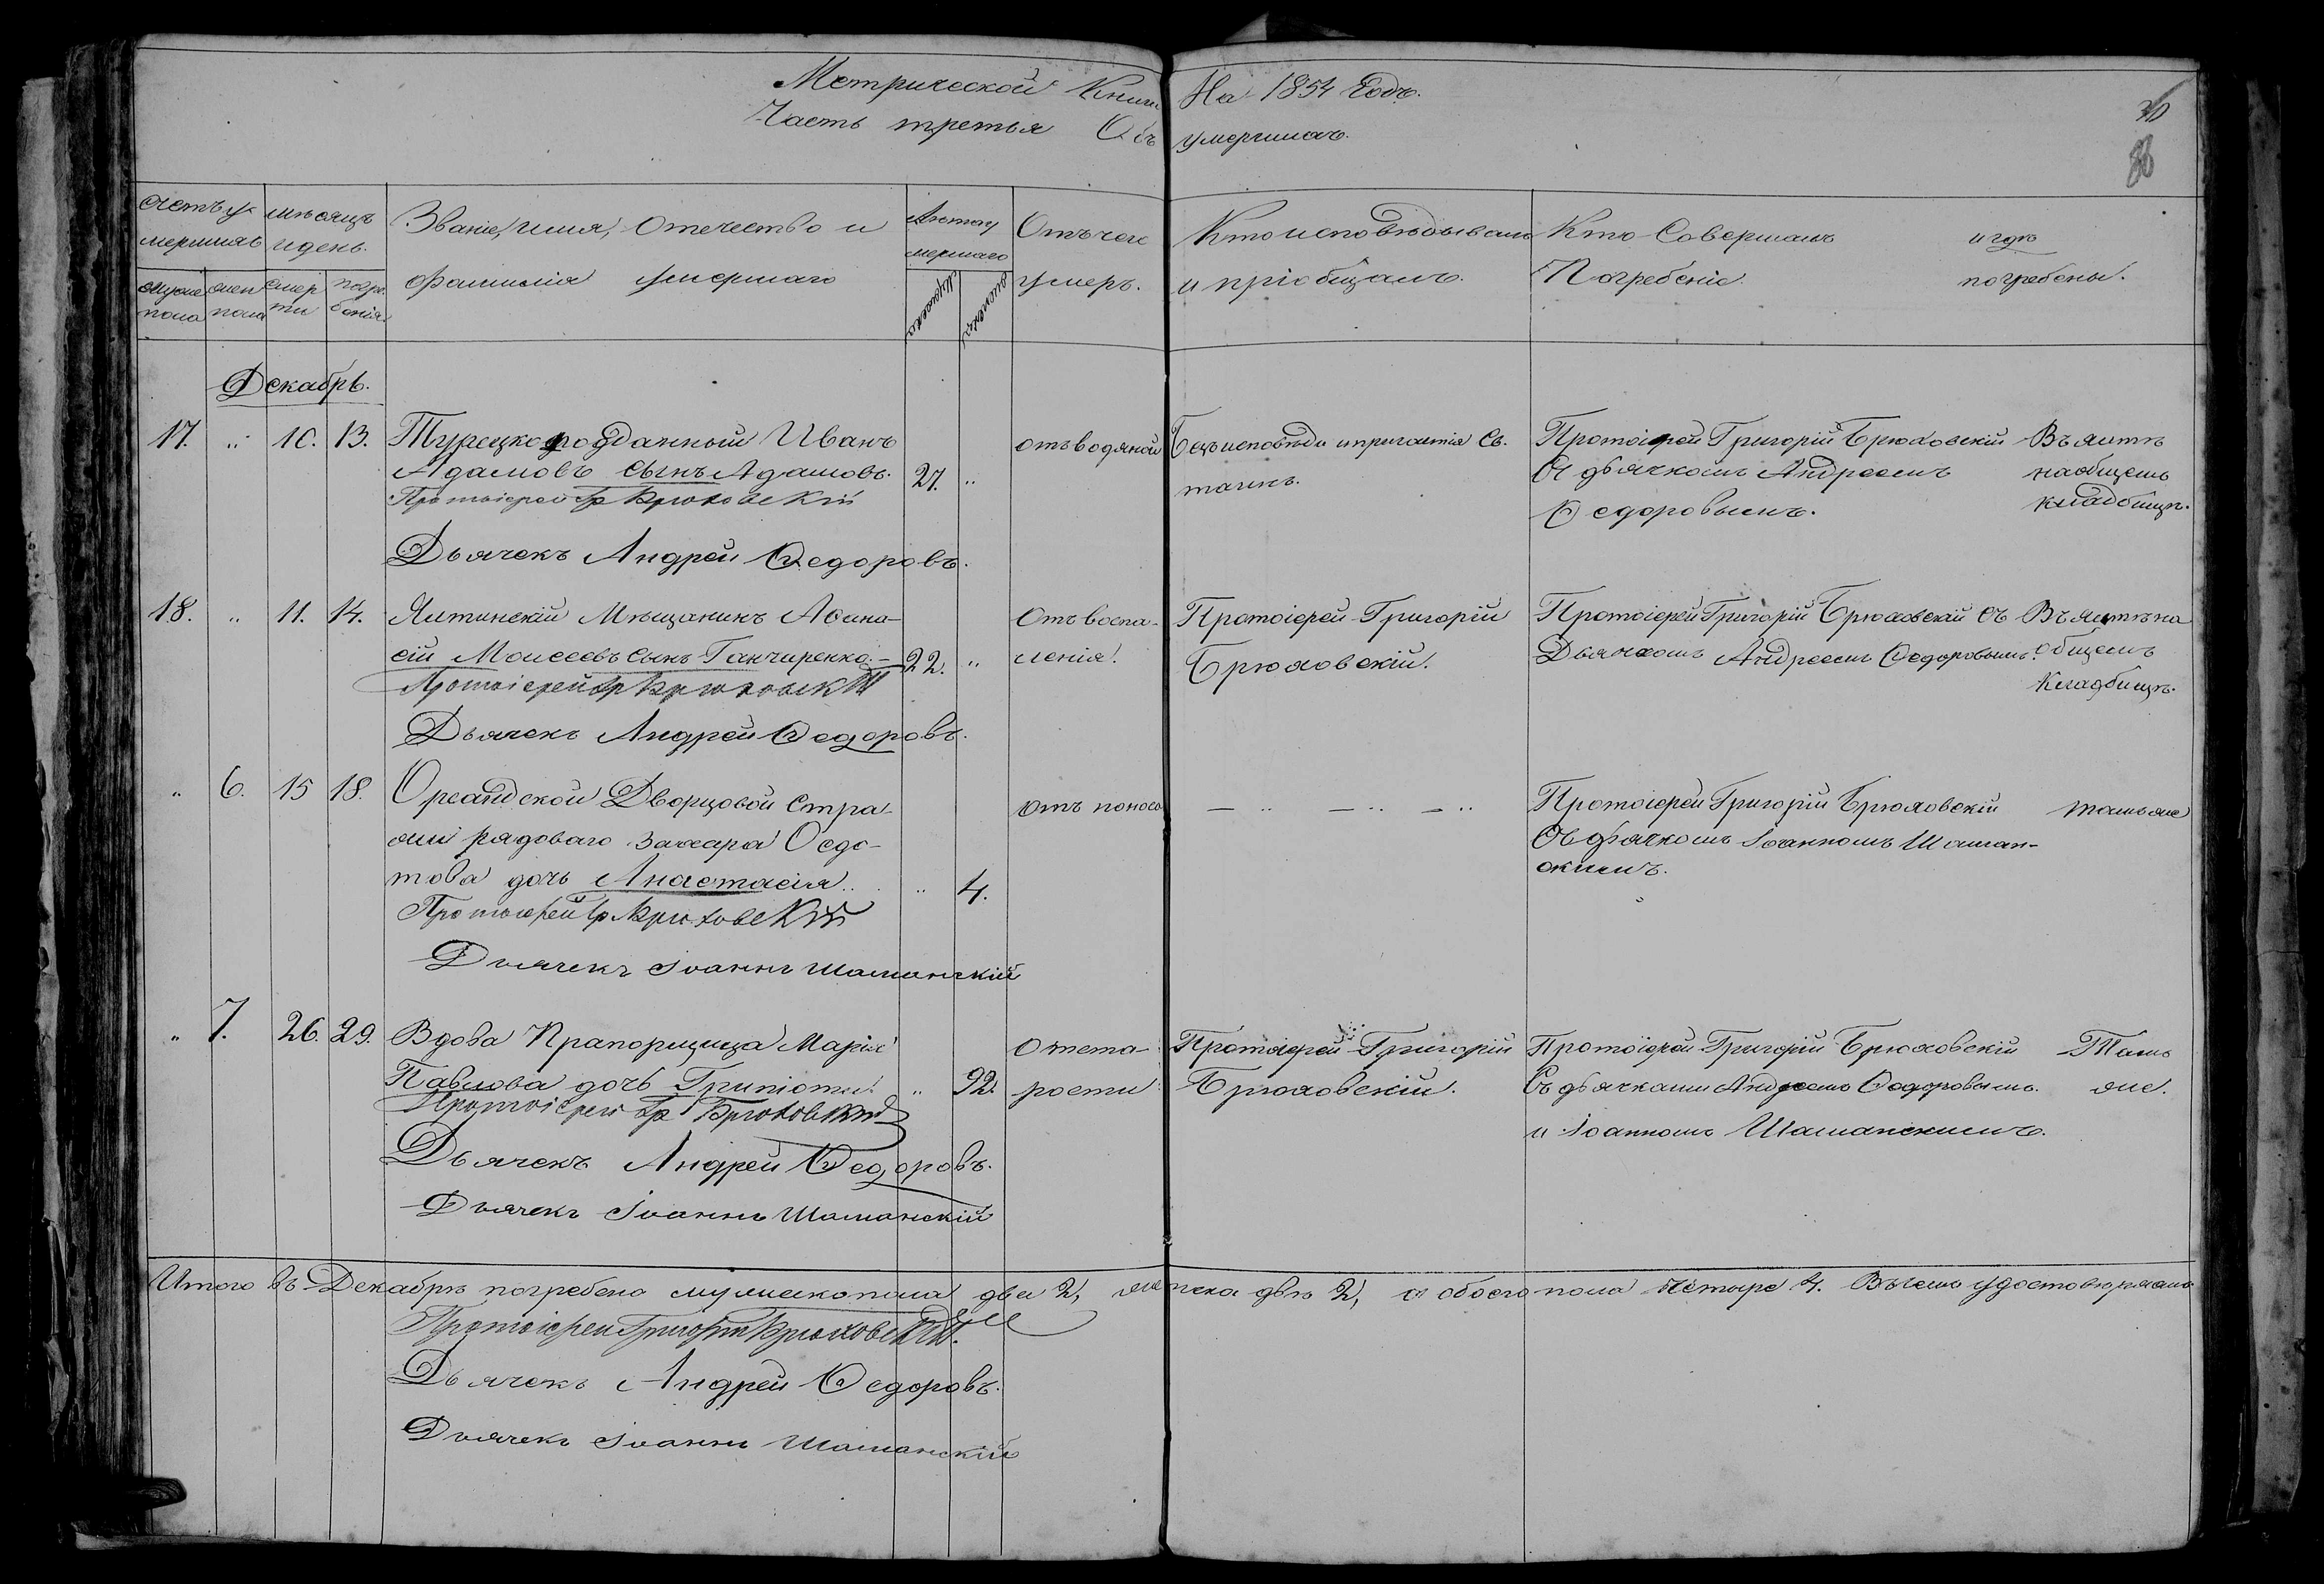 Метрической Книги На 1854 Годъ.
Часть третья Объ умершихъ.
30
Счетъ умершихъ
мѣсяцъ и день.
Званіе, имя, отечество и фамилія умершаго
Лѣта умершаго
Отъ чего умеръ.
Кто исповѣдывалъ и пріобщалъ.
Кто Совершалъ Погребеніе
и гдѣ погребены.
муже пола
жен пола
смерти
погребенія.
Мужеска
Женска
Декабрь.
17. " 10. 13.
Турецкоподданный Иванъ
Адамовъ сынъ Адамовъ. 27. "
Протоіерей Гр Брюховскій
Дьячекъ Андрей Ѳедоровъ.
отъ водяной
Безъ исповѣди и причастія Св.
таинъ.
Протоіерей Григорій Брюховскій
Съ дьячкомъ Андреемъ
Ѳедоровымъ.
Въ Ялтѣ
на общемъ
кладбищѣ.
18. " 11. 14.
Ялтинскій Мѣщанинъ Аѳана-
сій Моисеевъ сынъ Ганчиренко.- 22. "
Протоіерей Гр Брюховскій
Дьячекъ Андрей Ѳедоровъ.
Отъ воспа-
ленія.
Протоіерей Григорій
Брюховскій.
Протоіерей Григорій Брюховскій съ
Дьячкомъ Андреемъ Ѳедоровымъ.
Въ Ялтѣ на
общемъ
Кладбищѣ.
" 6. 15 18.
Ореандской Дворцовой Стра-
жи рядоваго Захара Ѳедо-
това дочь Анастасія.. " 4.
Протоіерей Гр Брюховскій
Дьячекъ Іоаннъ Шаманскій
отъ поноса
— " — " — "
Протоіерей Григорій Брюховскій
Съ дьячкомъ Іоанномъ Шаман-
скимъ.
тамъ же
" 7. 26. 29.
Вдова Прапорщица Марія
Павлова дочь Грипіоти. " 92.
Протоіерей Гр Брюховскій
Дьячекъ Андрей Ѳедоровъ.
Дьячекъ Іоаннъ Шаманскій
Отъ ста-
рости
Протоіерей Григорій
Брюховскій.
Протоіерей Григорій Брюховскій
Съ дьячками Андреемъ Ѳедоровымъ
и Іоанномъ Шаманскимъ.
Тамъ
же.
Итого въ Декабрѣ погребено мужеска пола два 2, женска двѣ 2, а обоего пола четыре 4. Въ чемъ удостовѣряемъ
Протоіерей Григорій Брюховскій.
Дьячекъ Андрей Ѳедоровъ.
Дьячекъ Іоаннъ Шаманскій